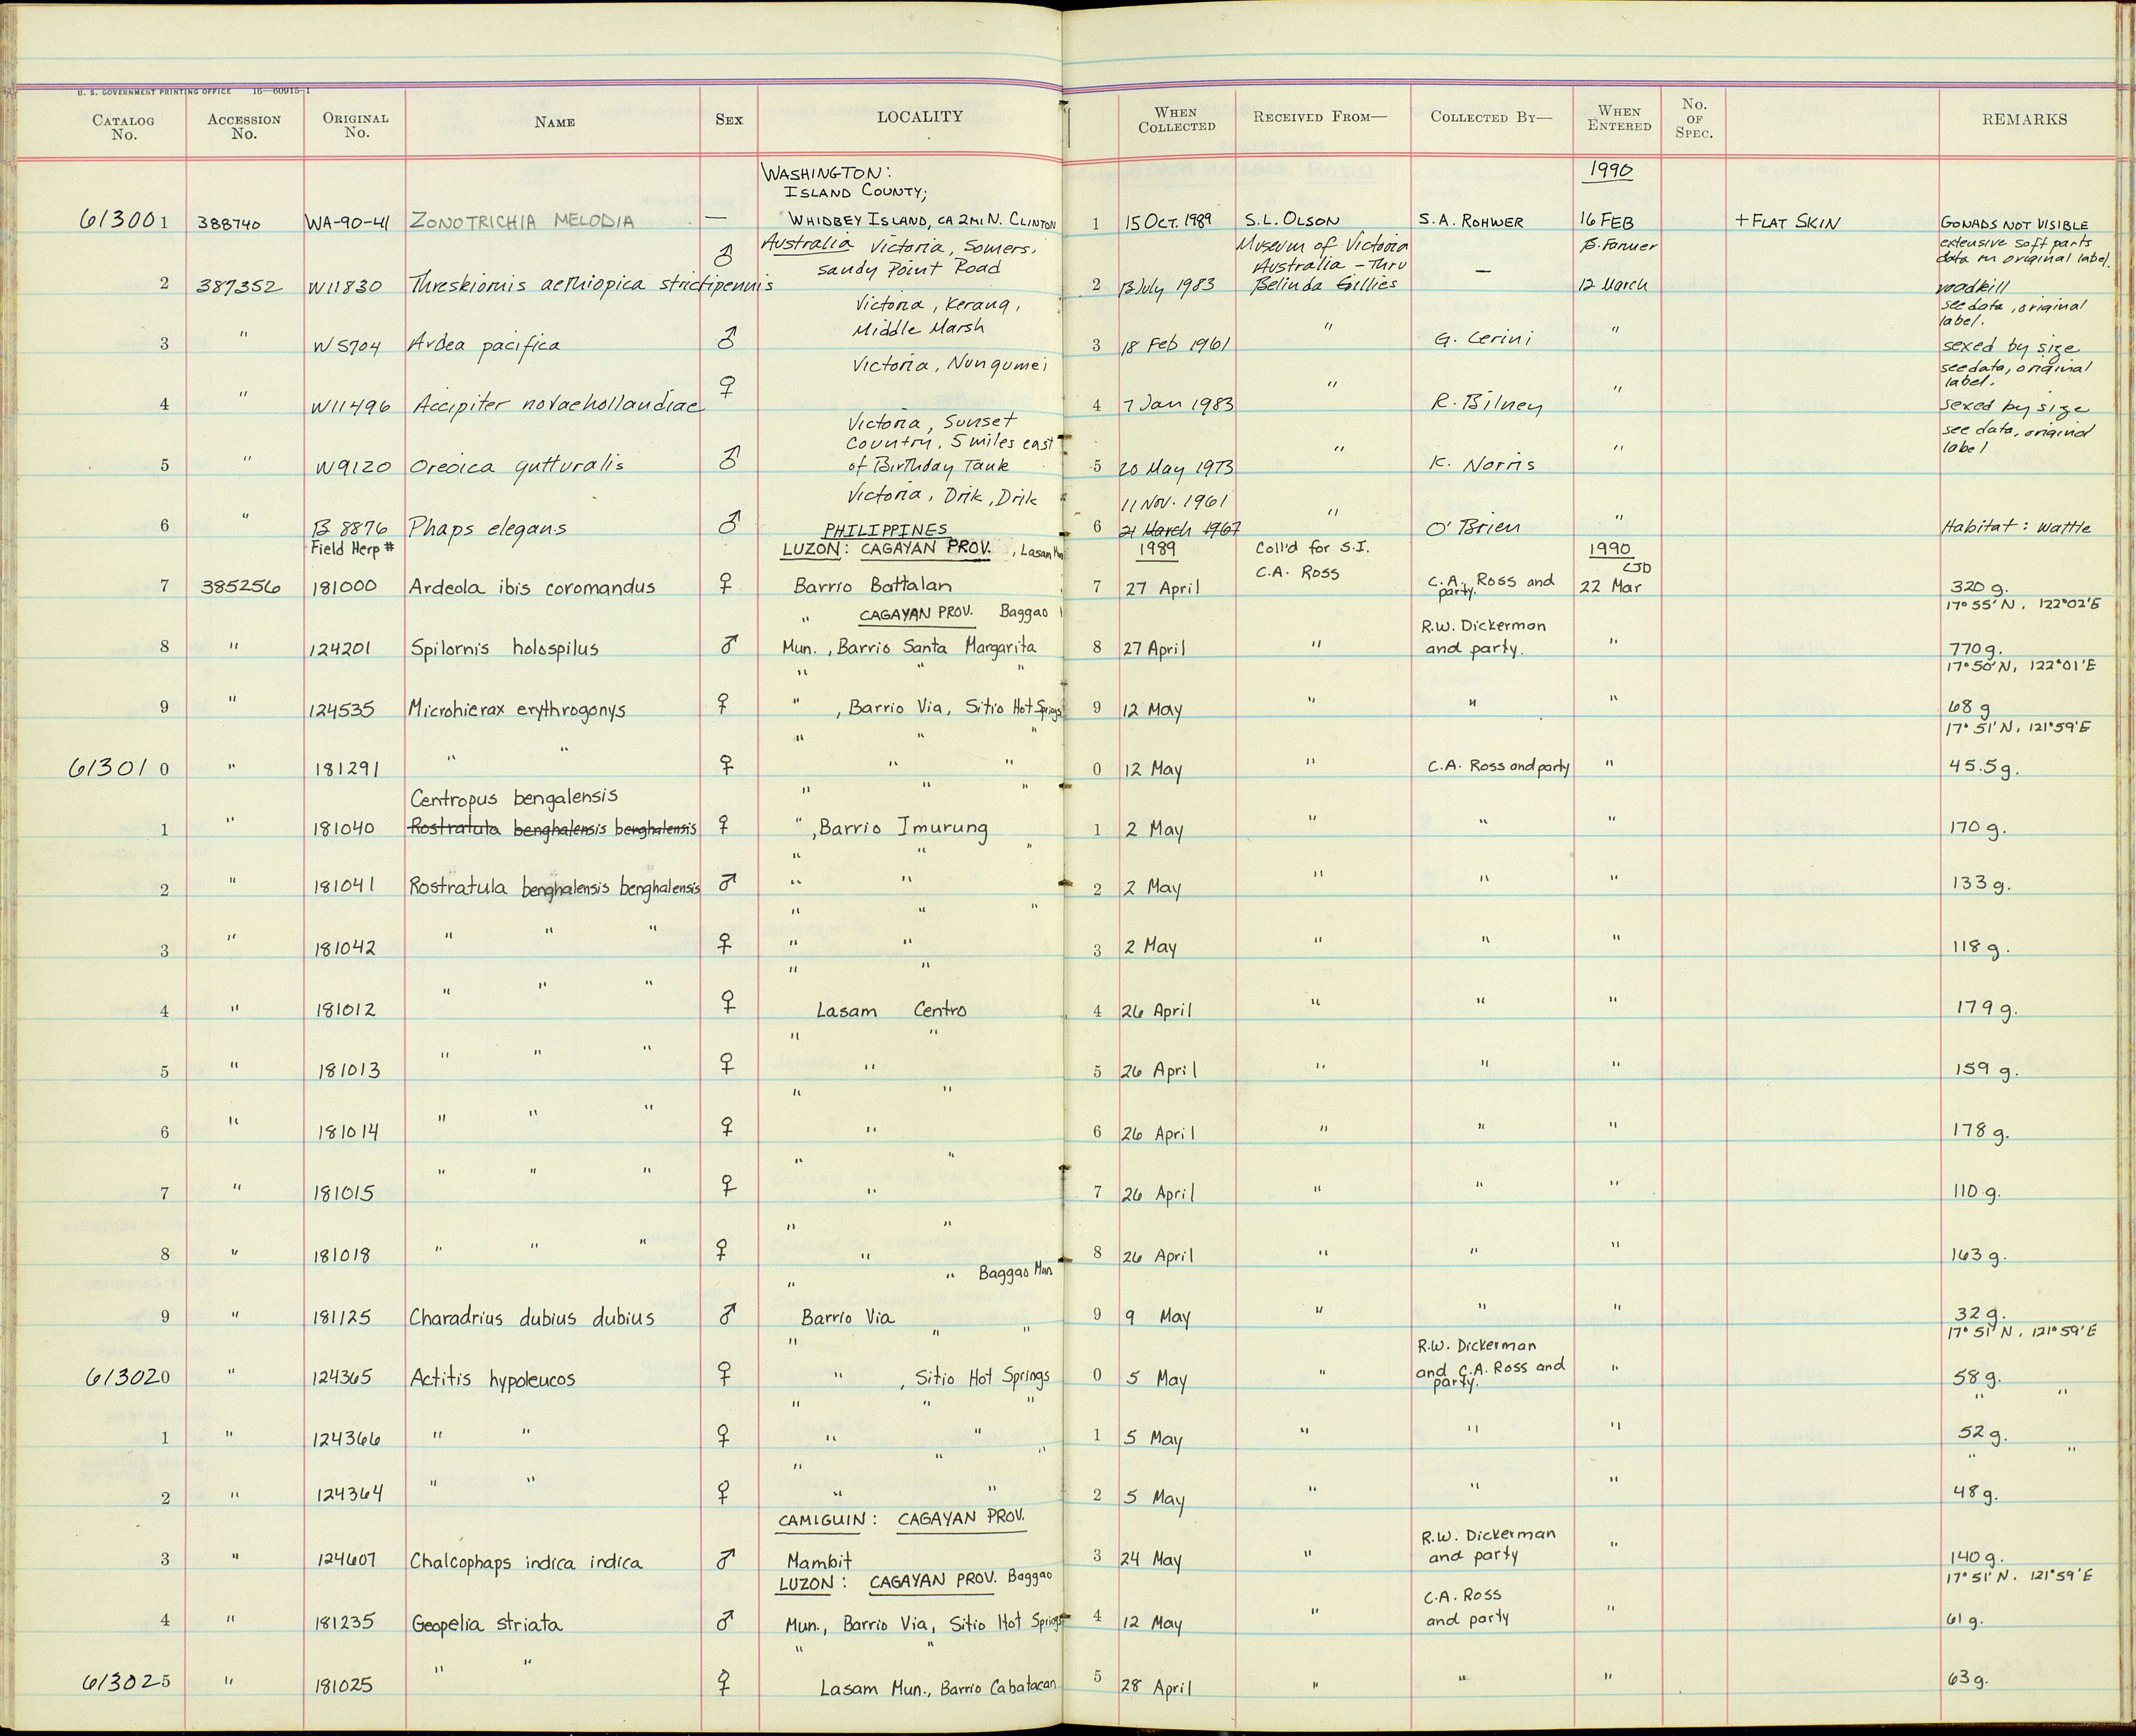 U. S. GOVERNMENT PRINTING OFFICE 16—60915-1
CATALOG No. ACCESSION No. ORIGINAL No. NAME SEX LOCALITY WHEN COLLECTED RECEIVED FROM— COLLECTED BY— WHEN ENTERED No. OF SPEC. REMARKS
WASHINGTON: 1990
ISLAND COUNTY;
613001 388740 WA-90-41 ZONOTRICHIA MELODIA — WHIDBEY ISLAND, CA 2MI N. CLINTON 1 15 OCT. 1989 S.L. OLSON S.A. ROHWER 16 FEB + FLAT SKIN GONADS NOT VISIBLE
Australia Victoria, Somers, Museum of Victoria B. Farmer extensive soft parts
sandy Point Road Australia - Thru data on original label.
2 387352 W11830 Threskiornis aethiopica strictipennis ♂ 2 13 July 1983 Belinda Gillies — 12 March roadkill
Victoria, Kerang, see data, original
Middle Marsh label.
3 " W5704 Ardea pacifica ♂ 3 18 Feb 1961 " G. Cerini " sexed by size
Victoria, Nungumei see data, original
label.
4 " W11496 Accipiter novaehollandiae ♀ 4 7 Jan 1983 " R. Bilney " sexed by size
Victoria, Sunset see data, original
Country, 5 miles east label
5 " W9120 Oreoica gutturalis ♂ of Birthday Tank 5 20 May 1973 " K. Norris "
Victoria, Drik, Drik 11 Nov. 1961
6 " B 8876 Phaps elegans ♂ PHILIPPINES 6 21 March 1967 " O'Brien " Habitat: wattle
Field Herp # LUZON: CAGAYAN PROV., Lasam Mun 1989 Coll'd for S.I. 1990
C.A. Ross CJD
7 385256 181000 Ardeola ibis coromandus ♀ Barrio Battalan 7 27 April C.A. Ross and party. 22 Mar 320 g.
" CAGAYAN PROV. Baggao 17°55'N, 122°02'E
R.W. Dickerman
8 " 124201 Spilornis holospilus ♂ Mun., Barrio Santa Margarita 8 27 April " and party. " 770 g.
" " " 17°50'N, 122°01'E
9 " 124535 Microhierax erythrogonys ♀ " , Barrio Via, Sitio Hot Springs 9 12 May " " " 68 g
" " " 17°51'N, 121°59'E
613010 " 181291 " " ♀ " " 0 12 May " C.A. Ross and party " 45.5 g.
Centropus bengalensis " " "
1 " 181040 Rostratula benghalensis benghalensis ♀ " , Barrio Imurung 1 2 May " " " 170 g.
" " "
2 " 181041 Rostratula benghalensis benghalensis ♂ " " 2 2 May " " " 133 g.
" " "
3 " 181042 " " " ♀ " " 3 2 May " " " 118 g.
" "
4 " 181012 " " " ♀ Lasam Centro 4 26 April " " " 179 g.
" "
5 " 181013 " " " ♀ " 5 26 April " " " 159 g.
" "
6 " 181014 " " " ♀ " 6 26 April " " " 178 g.
" "
7 " 181015 " " " ♀ " 7 26 April " " " 110 g.
" "
8 " 181018 " " " ♀ " 8 26 April " " " 163 g.
" " Baggao Mun
9 " 181125 Charadrius dubius dubius ♂ Barrio Via 9 9 May " " " 32 g.
" " " R.W. Dickerman 17°51'N, 121°59'E
613020 " 124365 Actitis hypoleucos ♀ " , Sitio Hot Springs 0 5 May " and C.A. Ross and party. " 58 g.
" " " " "
1 " 124366 " " ♀ " " 1 5 May " " " 52 g.
" " " " "
2 " 124364 " " ♀ " " 2 5 May " " " 48 g.
CAMIGUIN: CAGAYAN PROV.
R.W. Dickerman
3 " 124607 Chalcophaps indica indica ♂ Mambit 3 24 May " and party " 140 g.
LUZON: CAGAYAN PROV. Baggao 17°51'N. 121°59'E
C.A. Ross
4 " 181235 Geopelia striata ♂ Mun., Barrio Via, Sitio Hot Springs 4 12 May " and party " 61 g.
" "
613025 " 181025 " " ♀ Lasam Mun., Barrio Cabatacan 5 28 April " " " 63 g.